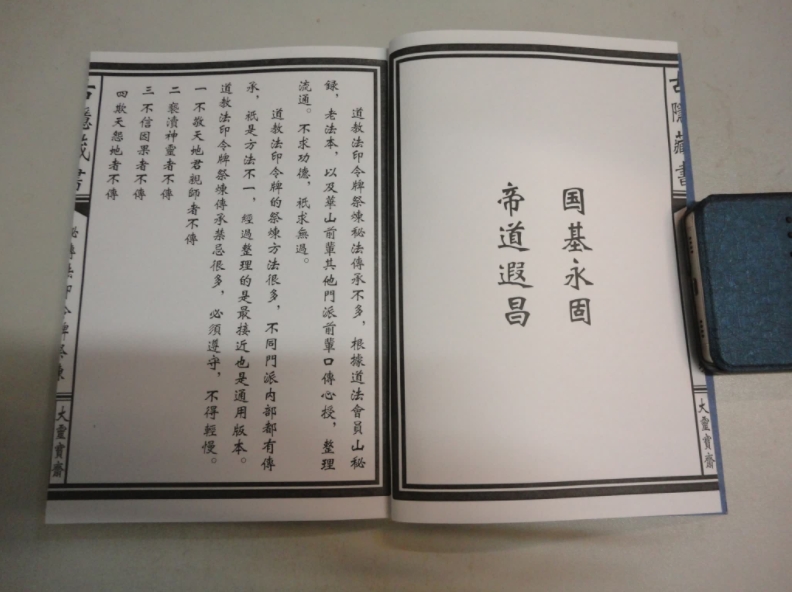 国基永固
帝道遐昌
道教法印令牌祭煉秘法傳承不多，根據道法會員山秘
録，老法本，以及華山前輩其他門派前輩口傳心授，整理
流通。不求功德，祇求無過。
道教法印令牌的祭煉方法很多，不同門派内部都有傳
承，祇是方法不一，經過整理的是最接近也是通用版本。
道教法印令牌祭煉傳承禁忌很多，必須遵守，不得輕慢。
一 不敬天地君親師者不傳
二 褻瀆神靈者不傳
三 不信因果者不傳
四 欺天怨地者不傳
古隱藏書
秘傳法印令牌祭煉
大靈寶齋
古隱藏書
大靈寶齋